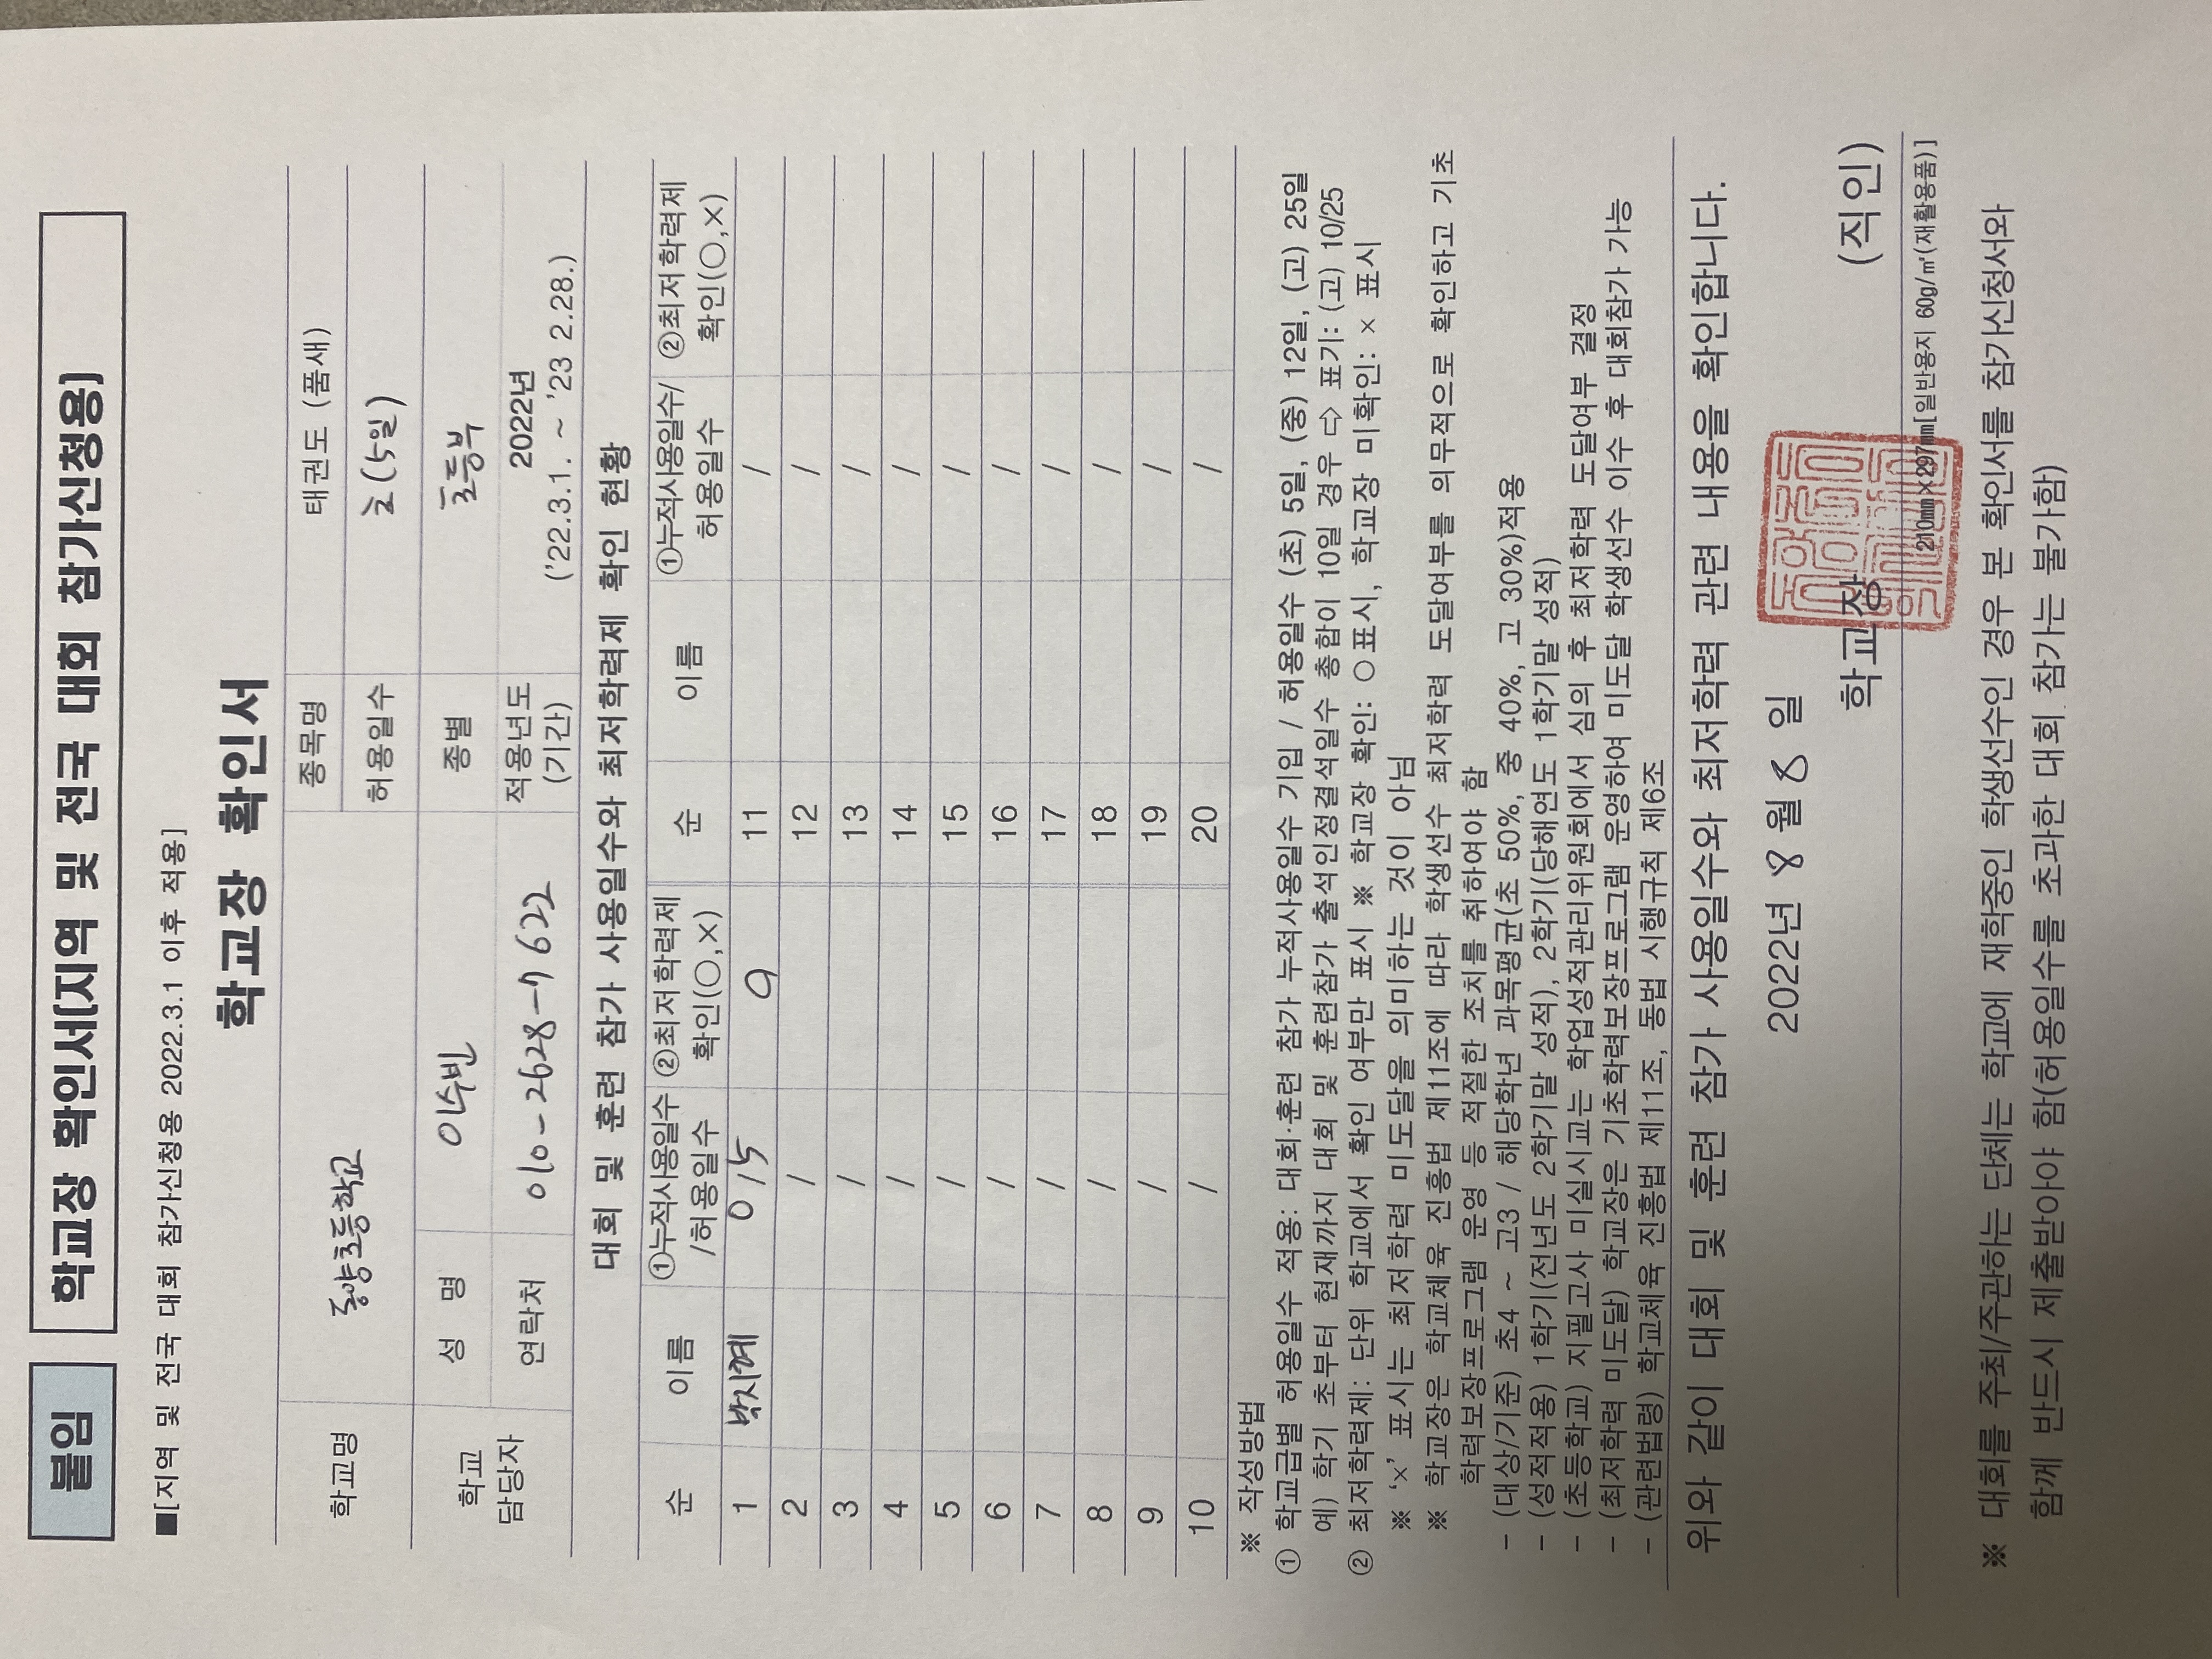 붙임 학교장 확인서[지역 및 전국 대회 참가신청용]
■[지역 및 전국 대회 참가신청용 2022.3.1 이후 적용]
학교장 확인서
학교명 동양초등학교 종목명 태권도 (품새)
허용일수 초(5일)
학교 담당자 성 명 이수빈 종별 초등부
연락처 010-2628-7622 적용년도 (기간) 2022년 ('22.3.1. ~ '23 2.28.)
대회 및 훈련 참가 사용일수와 최저학력제 확인 현황
순 이름 ①누적사용일수 /허용일수 ②최저학력제 확인(○,×) 순 이름 ①누적사용일수/ 허용일수 ②최저학력제 확인(○,×)
1 박시계 0/5 ○ 11 /
2 / 12 /
3 / 13 /
4 / 14 /
5 / 15 /
6 / 16 /
7 / 17 /
8 / 18 /
9 / 19 /
10 / 20 /
※ 작성방법
① 학교급별 허용일수 적용: 대회·훈련 참가 누적사용일수 기입 / 허용일수 (초) 5일, (중) 12일, (고) 25일
예) 학기 초부터 현재까지 대회 및 훈련참가 출석인정결석일수 총합이 10일 경우 ⇨ 표기: (고) 10/25
② 최저학력제: 단위 학교에서 확인 여부만 표시 ※ 학교장 확인: ○표시, 학교장 미확인: × 표시
※ '×' 표시는 최저학력 미도달을 의미하는 것이 아님
※ 학교장은 학교체육 진흥법 제11조에 따라 학생선수 최저학력 도달여부를 의무적으로 확인하고 기초
학력보장프로그램 운영 등 적절한 조치를 취하여야 함
- (대상/기준) 초4 ~ 고3 / 해당학년 과목평균(초 50%, 중 40%, 고 30%)적용
- (성적적용) 1학기(전년도 2학기말 성적), 2학기(당해연도 1학기말 성적)
- (초등학교) 지필고사 미실시교는 학업성적관리위원회에서 심의 후 최저학력 도달여부 결정
- (최저학력 미도달) 학교장은 기초학력보장프로그램 운영하여 미도달 학생선수 이수 후 대회참가 가능
- (관련법령) 학교체육 진흥법 제11조, 동법 시행규칙 제6조
위와 같이 대회 및 훈련 참가 사용일수와 최저학력 관련 내용을 확인합니다.
2022년 8월 8일
학교장 (직인)
210mm×297mm[일반용지 60g/㎡(재활용품)]
※ 대회를 주최/주관하는 단체는 학교에 재학중인 학생선수인 경우 본 확인서를 참가신청서와
함께 반드시 제출받아야 함(허용일수를 초과한 대회 참가는 불가함)